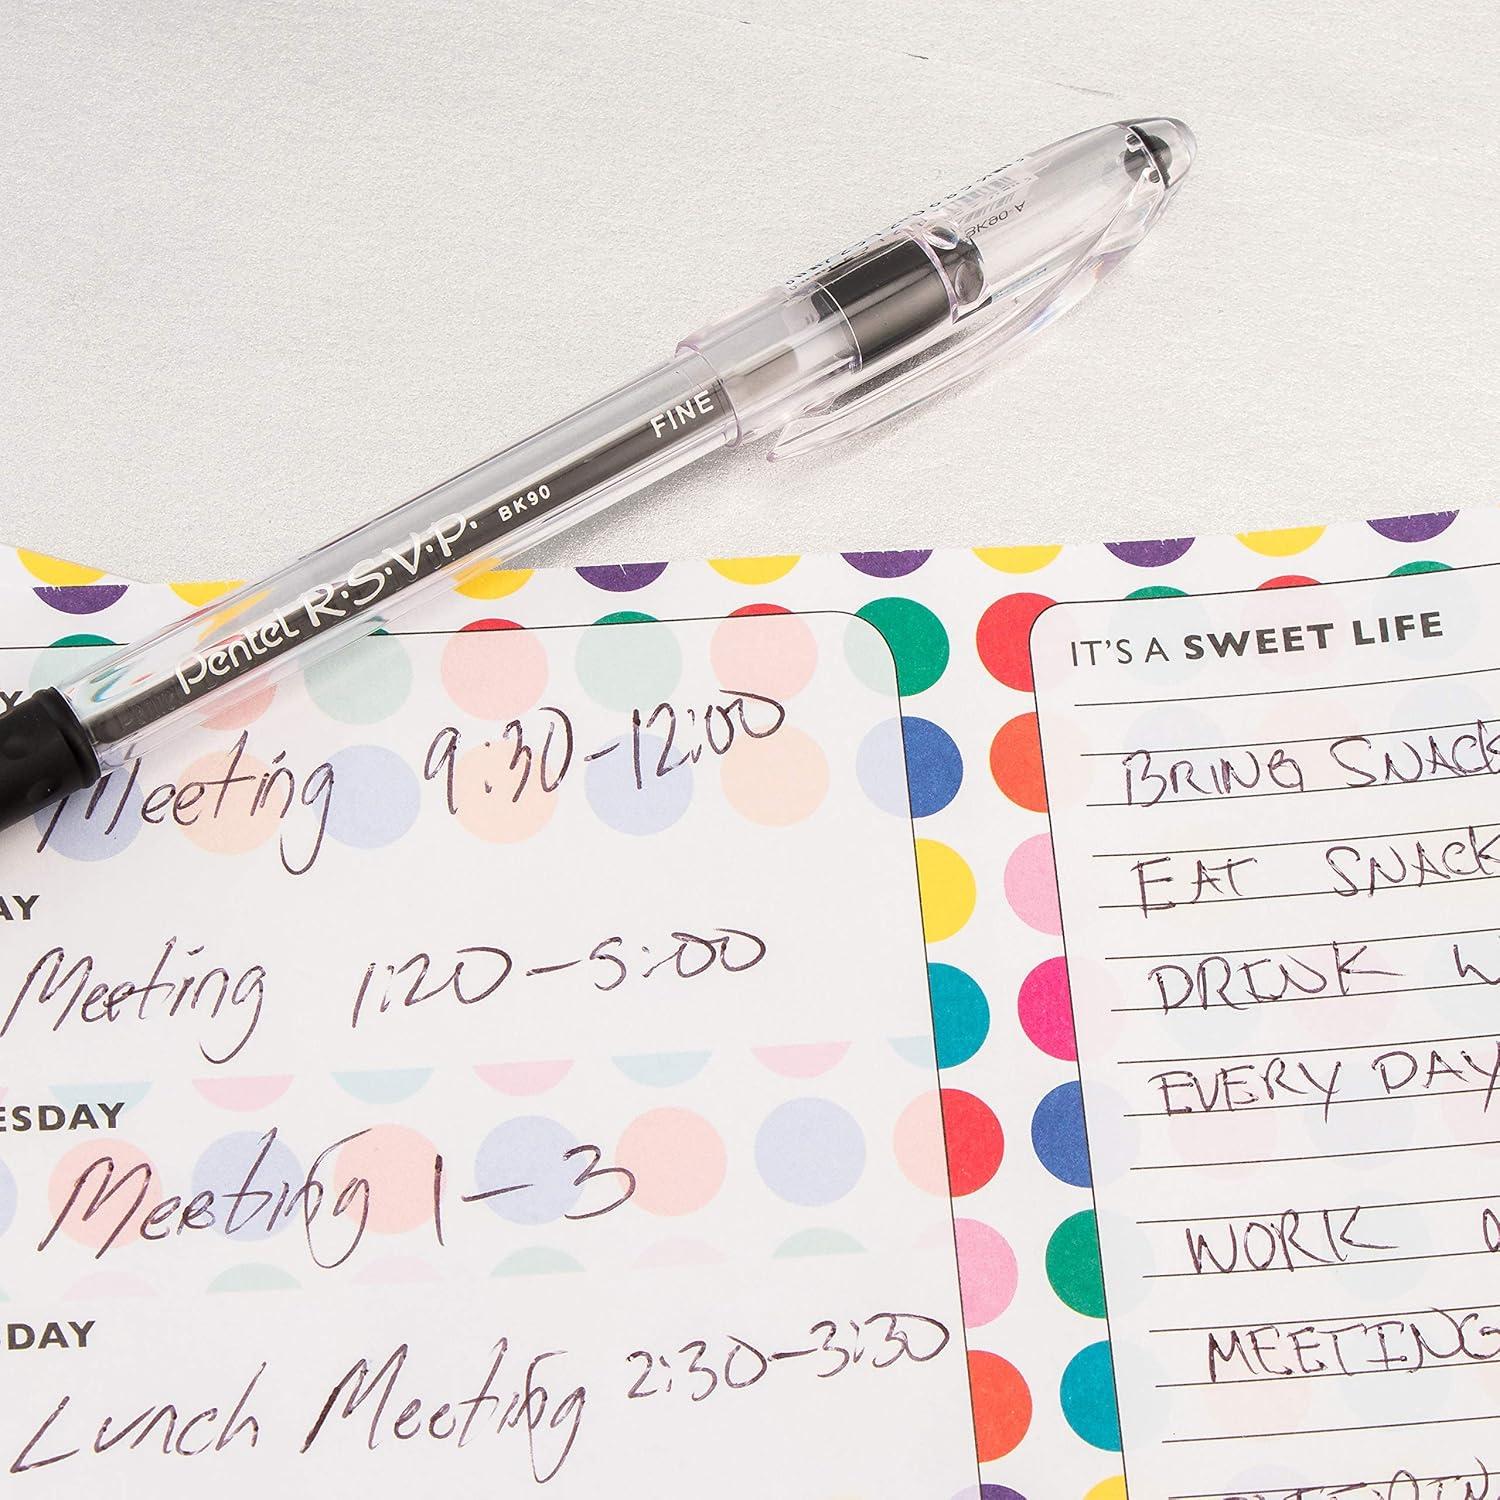 BK90-A
FINE
BK90
Pentel R.S.V.P.
Y
Meeting 9:30-12:00
AY
Meeting 1:20-5:00
ESDAY
Meeting 1-3
DAY
Lunch Meeting 2:30-3:30
IT'S A SWEET LIFE
BRING SNACK
EAT SNACK
DRINK W
EVERY DAY
WORK
MEETING